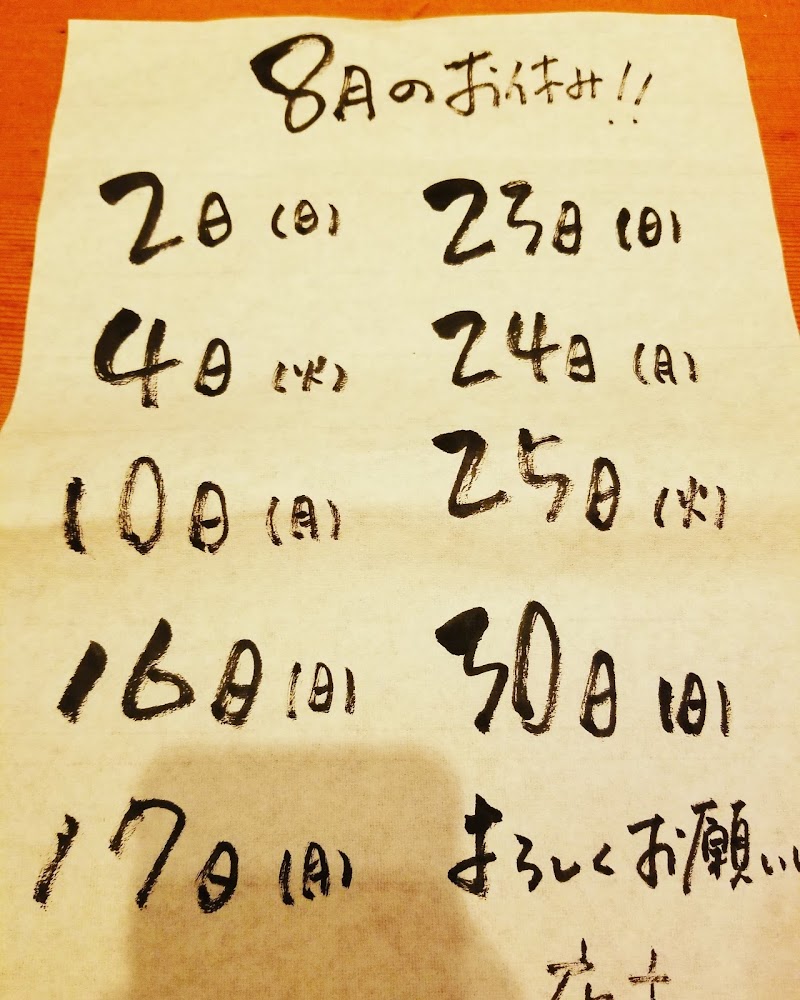 8月のお休み!!
2日(日)
4日(火)
10日(月)
16日(日)
17日(月)
23日(日)
24日(月)
25日(火)
30日(日)
よろしくお願いし